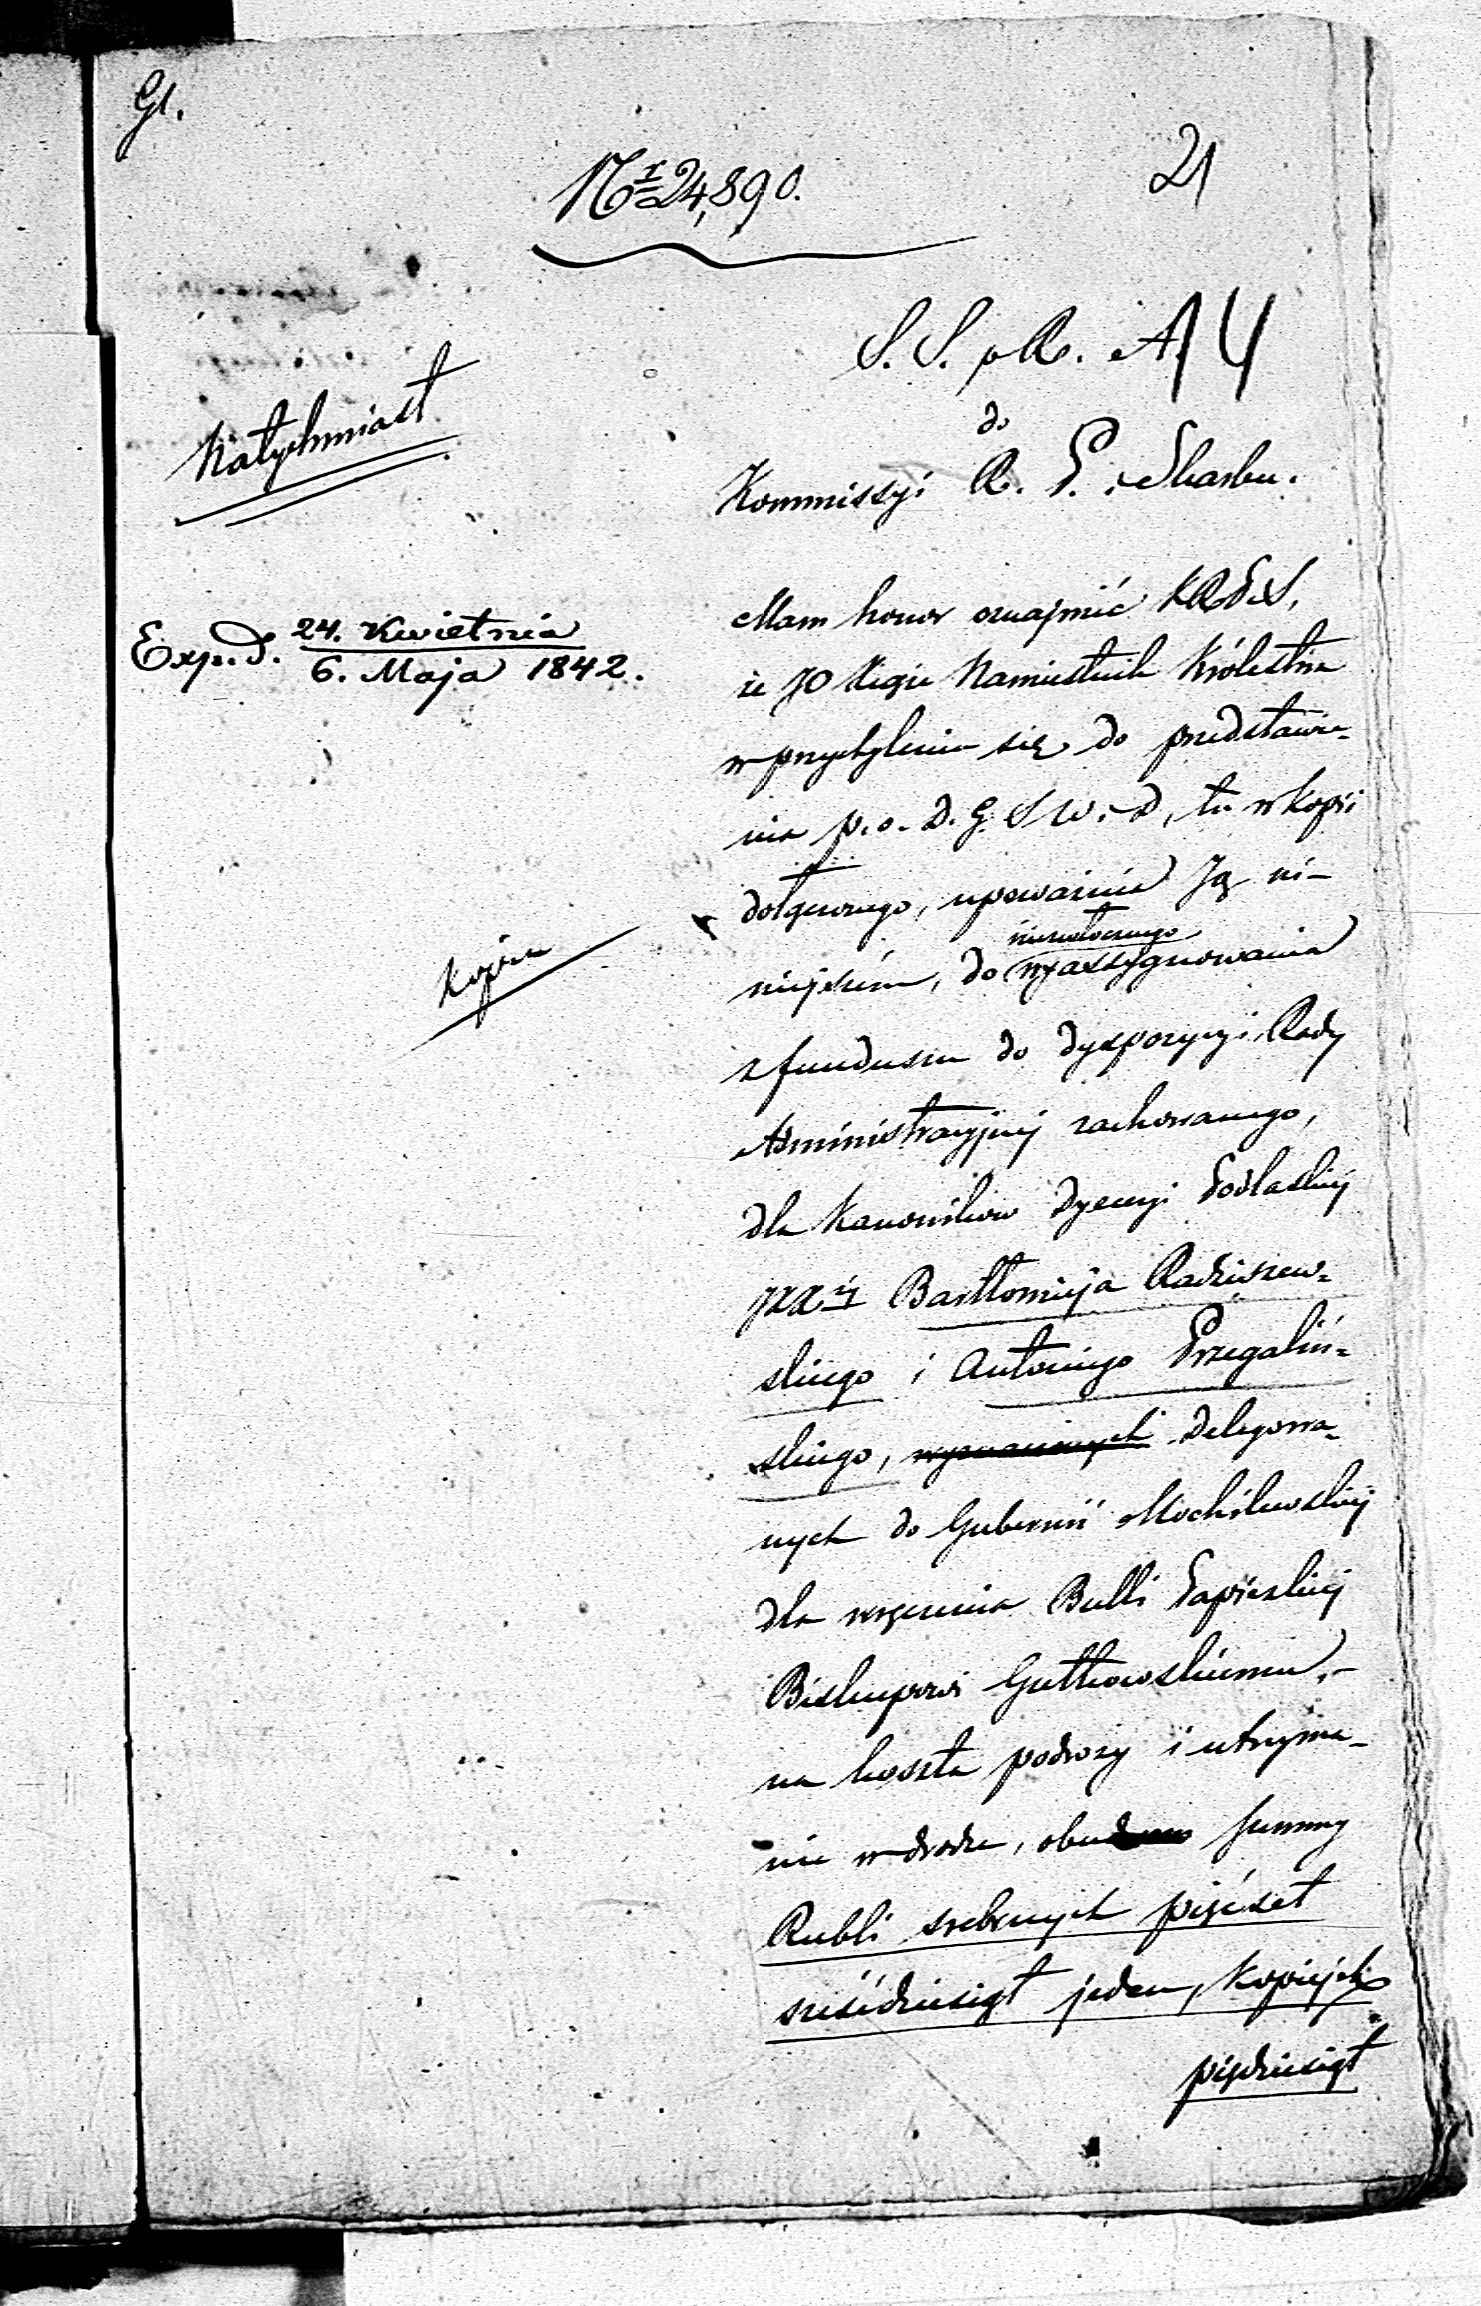 Gl.
Nr 24,890.
21
S. S. p R. A. 14
Natychmiast
do
Kommissyi R. P. i Skarbu.
Exp. d. 24. Kwietnia
6. Maja 1842.
Mam honor oznajmić KRPiS,
że JO Xiąże Namiestnik Królestwa
w przychyleniu się do przedstawie-
nia p. o. D. G. S W. i D, tu w kopii
dołączonego, upoważnia Ją ni-
kopia
niezwłocznego
niejszém, do wyassygnowania
z funduszu do dyspozycyi Rady
Administracyjnej zachowanego,
dla Kanoników Dyecezyi Podlaskiej
JXXży Bartłomieja Radziszew-
skiego i Antoniego Przegaliń-
skiego, wyznaczonych delegowa-
nych do Gubernii Mochilewskiej
dla wręczenia Bulli Papiezkiej
Biskupowi Gutkowskiemu,-
na koszta podroży i utrzyma-
nie w drodze, obu summy
Rubli srebrnych pięćset
sześćdziesiąt jeden, kopiejek
pięćdziesiąt